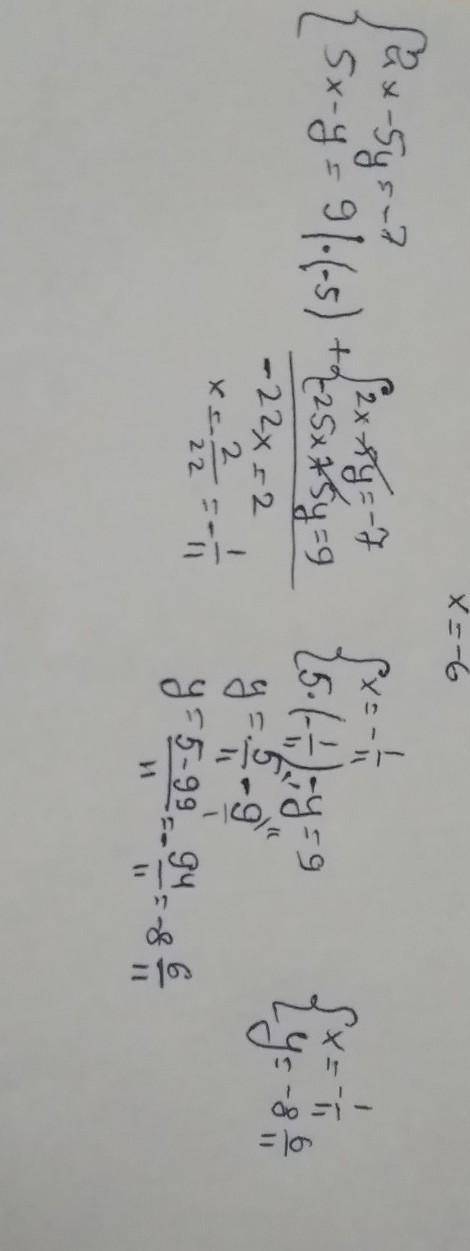 x = -6
{ 2x - 5y = -7
5x - y = 9 | · (-5)
+ { 2x - 5y = -7
-25x + 5y = 9
-22x = 2
x = - 2/22 = - 1/11
{ x = - 1/11
5 · (- 1/11) - y = 9
y = 5/11 - 9/1
y = 5 - 99/11 = - 94/11 = -8 6/11
{ x = - 1/11
y = -8 6/11